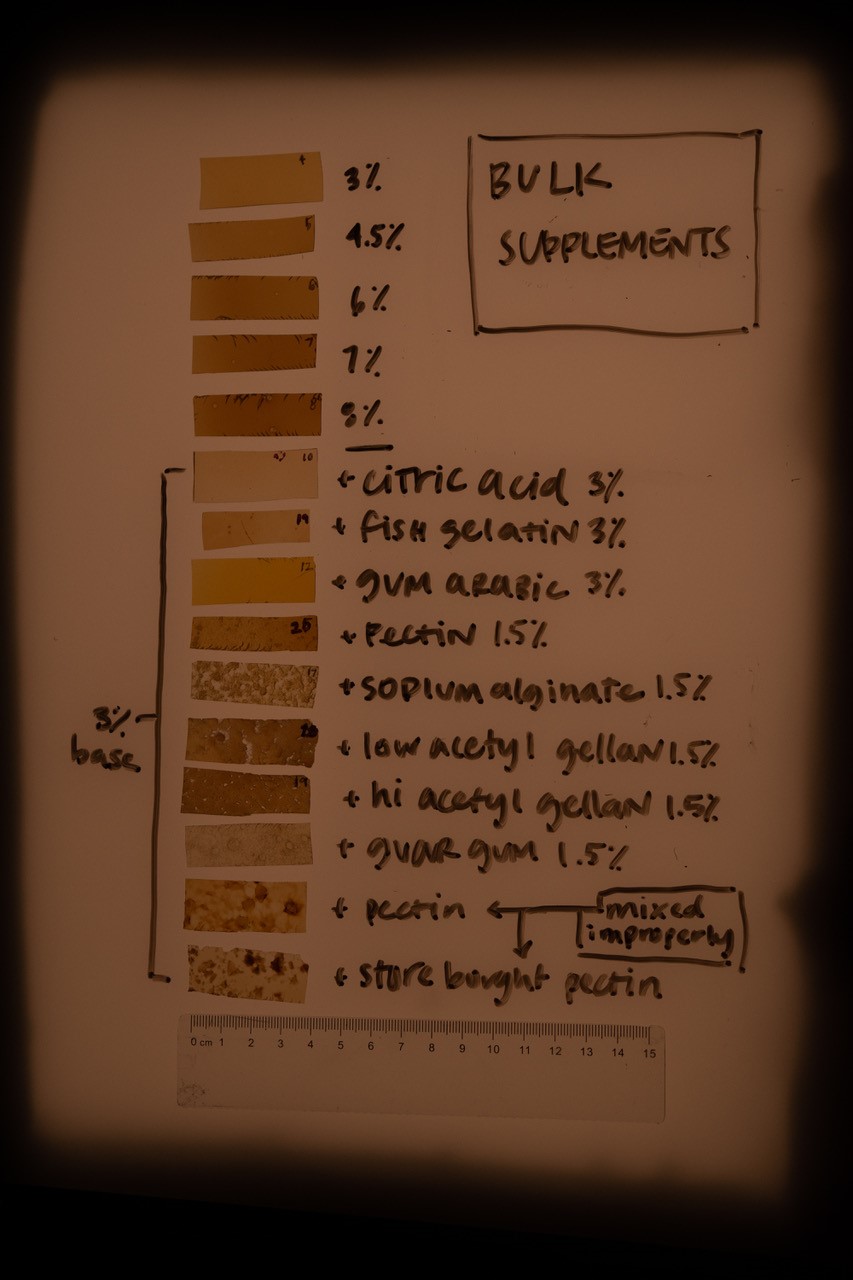 BULK
SUPPLEMENTS
4 3%
5 4.5%
6 6%
7 7%
8 8%
10 + citric acid 3%
19 + fish gelatin 3%
12 + gum arabic 3%
25 + Pectin 1.5%
17 + sodium alginate 1.5%
20 + low acetyl gellan 1.5%
19 + hi acetyl gellan 1.5%
+ guar gum 1.5%
3%
base
+ pectin ← mixed
improperly
+ store bought pectin
0 cm 1 2 3 4 5 6 7 8 9 10 11 12 13 14 15